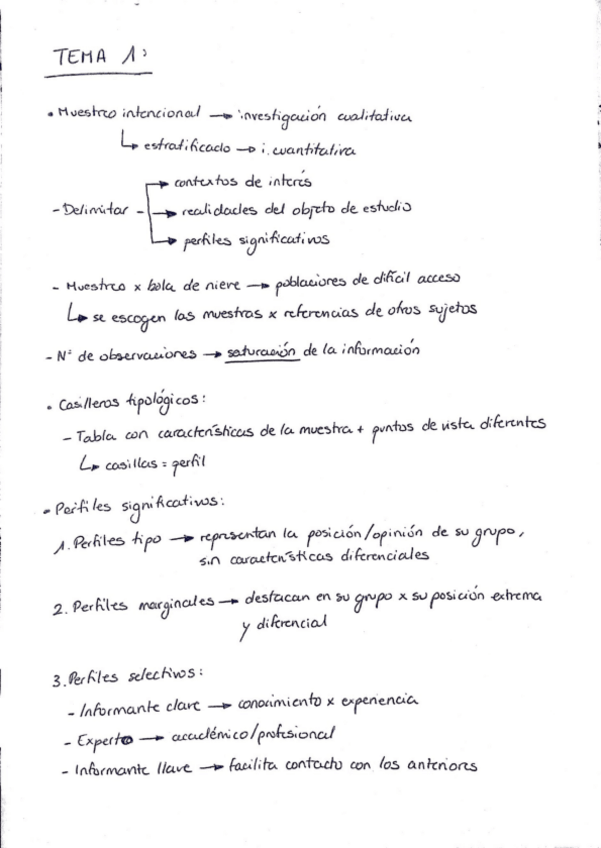 TEMA 1:
• Muestreo intencional → investigación cualitativa
↳ estratificado → i. cuantitativa
→ contextos de interés
- Delimitar → realidades del objeto de estudio
→ perfiles significativos
- Muestreo x bola de nieve → poblaciones de difícil acceso
↳ se escogen las muestras x referencias de otros sujetos
- Nº de observaciones → saturación de la información
• Casilleros tipológicos:
- Tabla con características de la muestra + puntos de vista diferentes
↳ casillas = perfil
• Perfiles significativos:
1. Perfiles tipo → representan la posición/opinión de su grupo,
sin características diferenciales
2. Perfiles marginales → destacan en su grupo x su posición extrema
y diferencial
3. Perfiles selectivos:
- Informante clave → conocimiento x experiencia
- Experto → académico/profesional
- Informante llave → facilita contacto con los anteriores